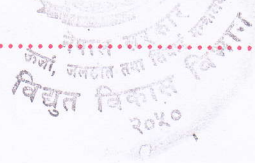 नेपाल सरकार
ऊर्जा, जलस्रोत तथा सिंचाइ मन्त्रालय
विद्युत विकास विभाग
२०५०